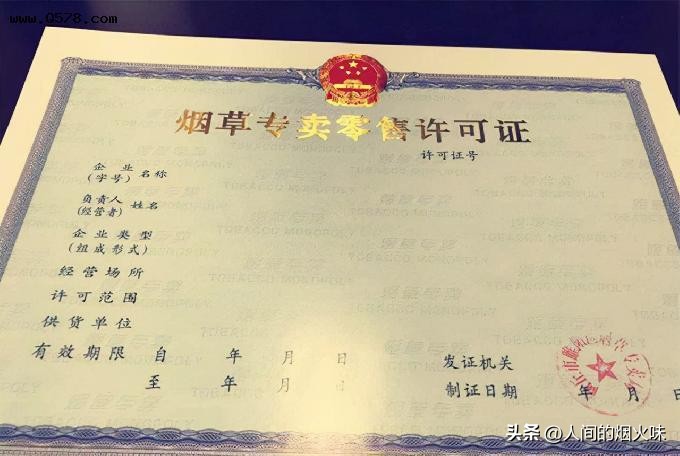 www.Q578.com
烟草专卖零售许可证
许可证号
企业
(字号) 名称
负责人
(经营者) 姓名
企业类型
(组成形式)
经营场所
许可范围
供货单位
有效期限 自 年 月 日
至 年 月 日
发证机关
制证日期 年 月 日
头条 @人间的烟火味